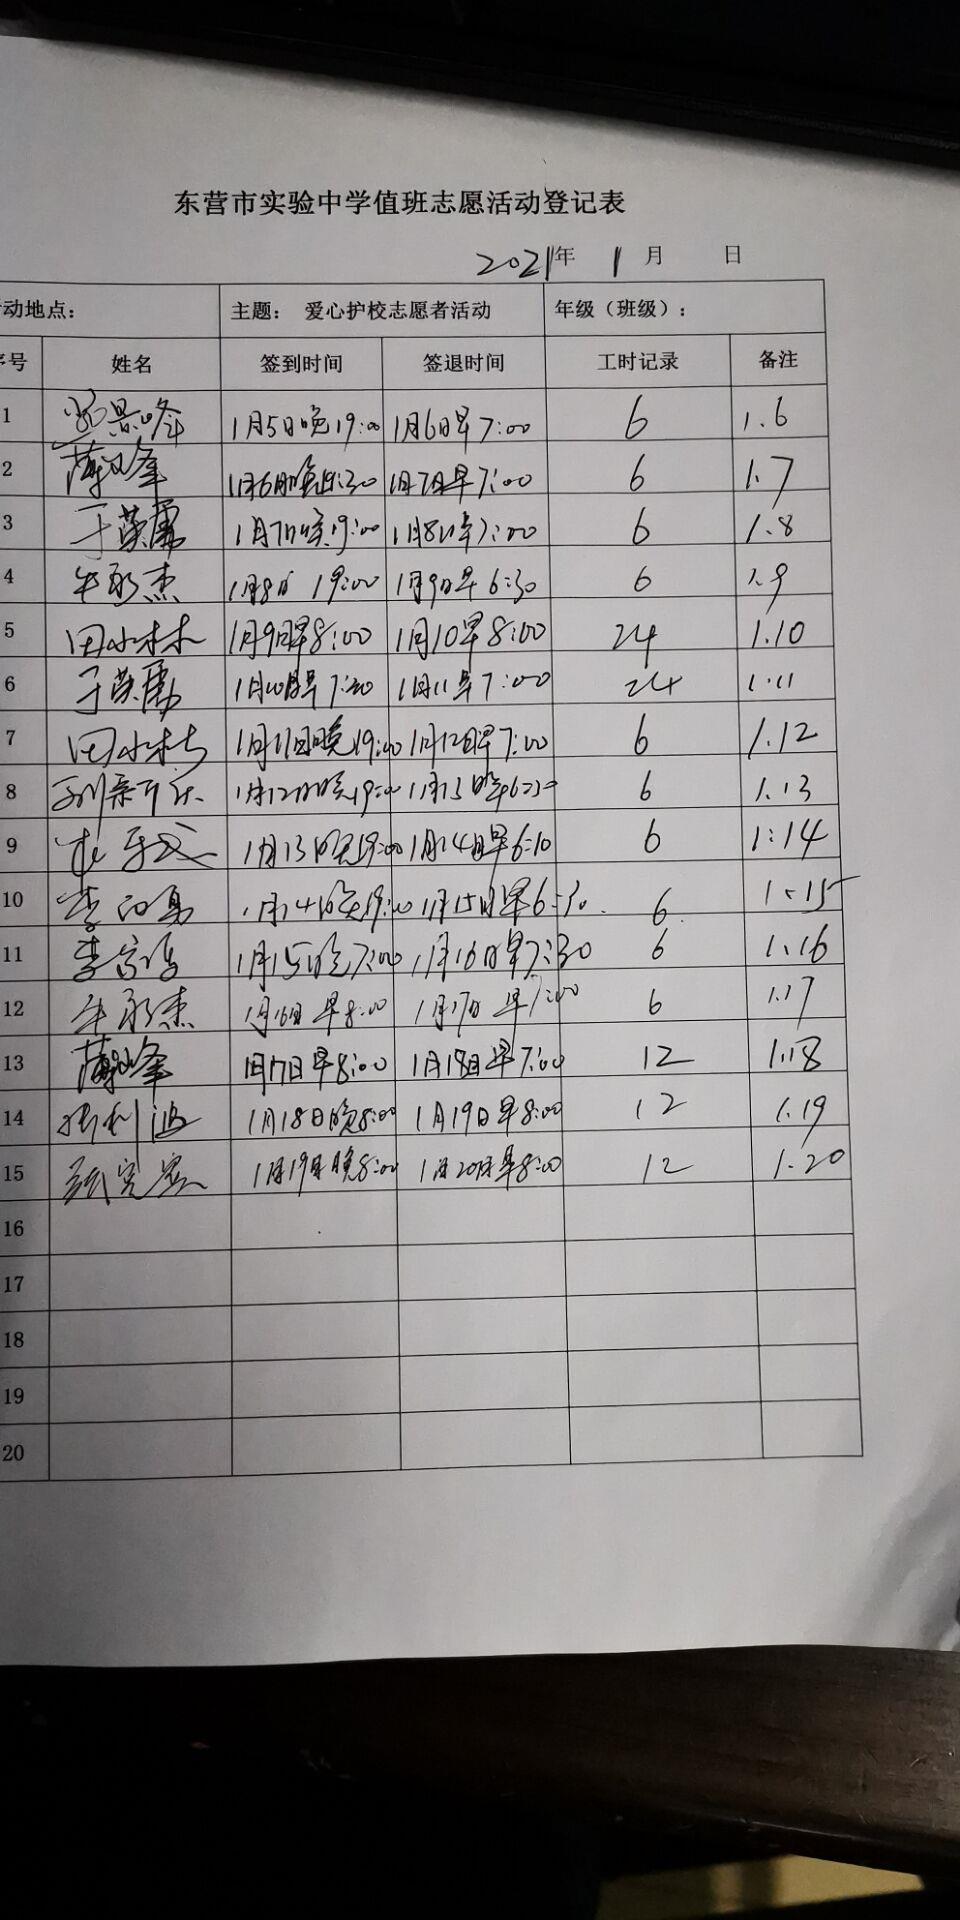 东营市实验中学值班志愿活动登记表
2021年 1月 日
动地点: 主题: 爱心护校志愿者活动 年级(班级):
序号 姓名 签到时间 签退时间 工时记录 备注
1 景峰 1月5日晚19:00 1月6日早7:00 6 1.6
2 薄 峰 1月6日晚19:30 1月7日早7:00 6 1.7
3 于荣勇 1月7日晚19:00 1月8日早7:00 6 1.8
4 牟永杰 1月8日 19:00 1月9日早6:30 6 1.9
5 田 1月9日早8:00 1月10早8:00 24 1.10
6 于荣勇 1月10日早7:30 1月11早7:00 24 1.11
7 田 1月11日晚19:00 1月12日早7:00 6 1.12
8 1月12日晚19:00 1月13日早6:30 6 1.13
9 1月13晚19:00 1月14日早6:10 6 1:14
10 李 1月14晚19:00 1月15日早6:30. 6. 1.15
11 李 1月15晚7:00 1月16日早7:30 6 1.16
12 牟永杰 1月16日早8:00 1月17日早7:00 6 1.17
13 薄 峰 1月17日早8:00 1月18日早7:00 12 1.18
14 利波 1月18日晚8:00 1月19日早8:00 12 1.19
15 1月19日晚8:00 1月20日早8:00 12 1.20
16
17
18
19
20